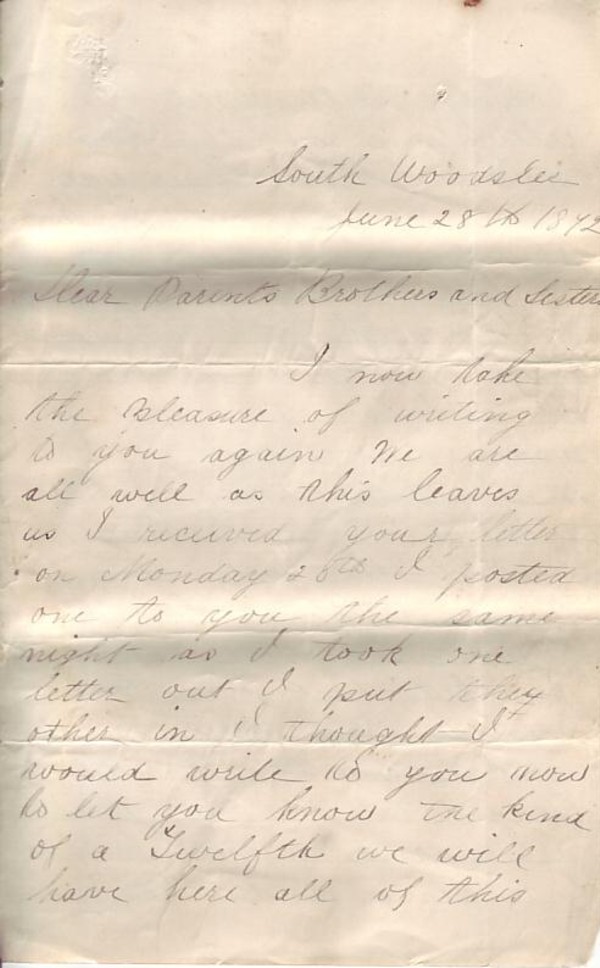 South Woodslee
June 28th 1892
Dear Parents Brothers and Sisters
I now take
the pleasure of writing
to you again We are
all well as this leaves
us I received your letter
on Monday 26th I posted
one to you the same
night as I took one
letter out I put they
other in I thought I
would write to you now
to let you know the kind
of a Twelfth we will
have here all of this